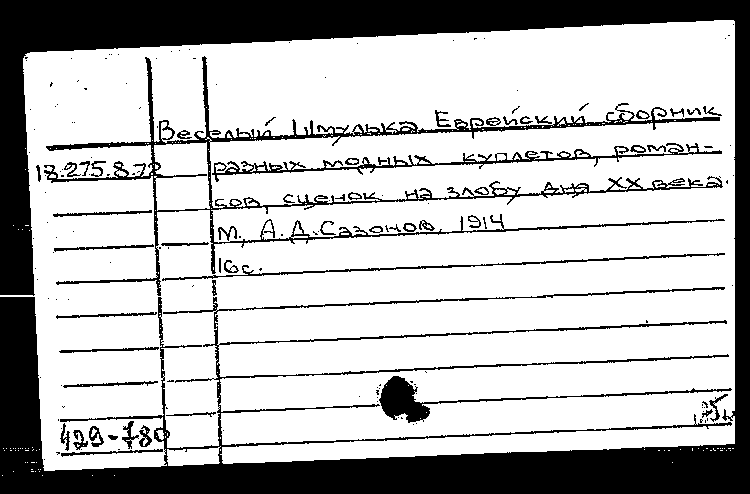 Веселый Шмулька. Еврейский сборник
18.275.8.72 разных модных куплетов, роман-
сов, сценок на злобу дня XX века.
М., А.Д.Сазонов, 1914
16с.
429-780